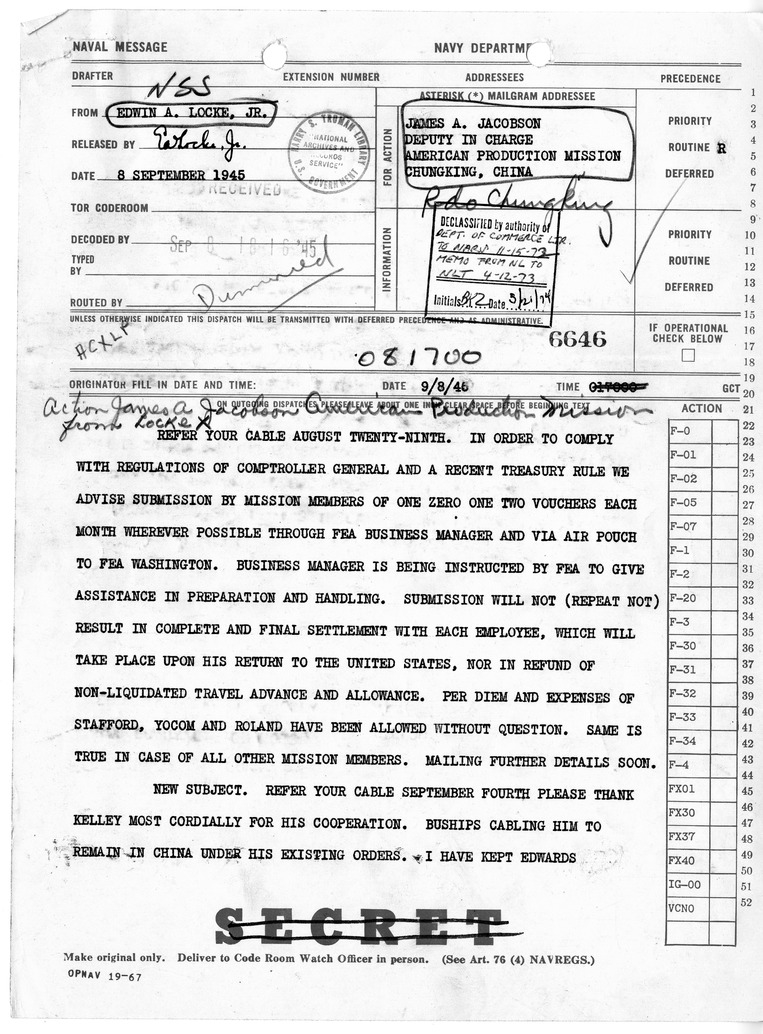 NAVAL MESSAGE NAVY DEPARTME
DRAFTER EXTENSION NUMBER ADDRESSEES PRECEDENCE
NSS
ASTERISK (*) MAILGRAM ADDRESSEE
FROM EDWIN A. LOCKE, JR.
RELEASED BY EALocke, Jr.
DATE 8 SEPTEMBER 1945
RECEIVED
HARRY S. TRUMAN LIBRARY
"NATIONAL
ARCHIVES AND
RECORDS
SERVICE"
U.S. GOVERNMENT
TOR CODEROOM
DECODED BY SEP 8 16 16 '45
TYPED
BY
ROUTED BY
FOR ACTION
JAMES A. JACOBSON
DEPUTY IN CHARGE
AMERICAN PRODUCTION MISSION
CHUNGKING, CHINA
Rdo Chungking
PRIORITY
ROUTINE R
DEFERRED
INFORMATION
DECLASSIFIED by authority of
DEPT. OF COMMERCE LTR.
TO NARS 11-15-73
MEMO FROM NL TO
NLT 4-12-73
Initials Date 5/21/74
PRIORITY
ROUTINE
DEFERRED
UNLESS OTHERWISE INDICATED THIS DISPATCH WILL BE TRANSMITTED WITH DEFERRED PRECEDENCE AND AS ADMINISTRATIVE.
ACXLP
6646
081700
IF OPERATIONAL
CHECK BELOW
ORIGINATOR FILL IN DATE AND TIME: DATE 9/8/45 TIME 017000 GCT
ON OUTGOING DISPATCHES PLEASE LEAVE ABOUT ONE INCH CLEAR SPACE BEFORE BEGINNING TEXT
Action James A Jacobson American Production Mission
from Locke X
REFER YOUR CABLE AUGUST TWENTY-NINTH. IN ORDER TO COMPLY
WITH REGULATIONS OF COMPTROLLER GENERAL AND A RECENT TREASURY RULE WE
ADVISE SUBMISSION BY MISSION MEMBERS OF ONE ZERO ONE TWO VOUCHERS EACH
MONTH WHEREVER POSSIBLE THROUGH FEA BUSINESS MANAGER AND VIA AIR POUCH
TO FEA WASHINGTON. BUSINESS MANAGER IS BEING INSTRUCTED BY FEA TO GIVE
ASSISTANCE IN PREPARATION AND HANDLING. SUBMISSION WILL NOT (REPEAT NOT)
RESULT IN COMPLETE AND FINAL SETTLEMENT WITH EACH EMPLOYEE, WHICH WILL
TAKE PLACE UPON HIS RETURN TO THE UNITED STATES, NOR IN REFUND OF
NON-LIQUIDATED TRAVEL ADVANCE AND ALLOWANCE. PER DIEM AND EXPENSES OF
STAFFORD, YOCOM AND ROLAND HAVE BEEN ALLOWED WITHOUT QUESTION. SAME IS
TRUE IN CASE OF ALL OTHER MISSION MEMBERS. MAILING FURTHER DETAILS SOON.
NEW SUBJECT. REFER YOUR CABLE SEPTEMBER FOURTH PLEASE THANK
KELLEY MOST CORDIALLY FOR HIS COOPERATION. BUSHIPS CABLING HIM TO
REMAIN IN CHINA UNDER HIS EXISTING ORDERS. I HAVE KEPT EDWARDS
ACTION
F-0
F-01
F-02
F-05
F-07
F-1
F-2
F-20
F-3
F-30
F-31
F-32
F-33
F-34
F-4
FX01
FX30
FX37
FX40
IG-00
VCNO
1
2
3
4
5
6
7
8
9
10
11
12
13
14
15
16
17
18
19
20
21
22
23
24
25
26
27
28
29
30
31
32
33
34
35
36
37
38
39
40
41
42
43
44
45
46
47
48
49
50
51
52
SECRET
Make original only. Deliver to Code Room Watch Officer in person. (See Art. 76 (4) NAVREGS.)
OPNAV 19-67